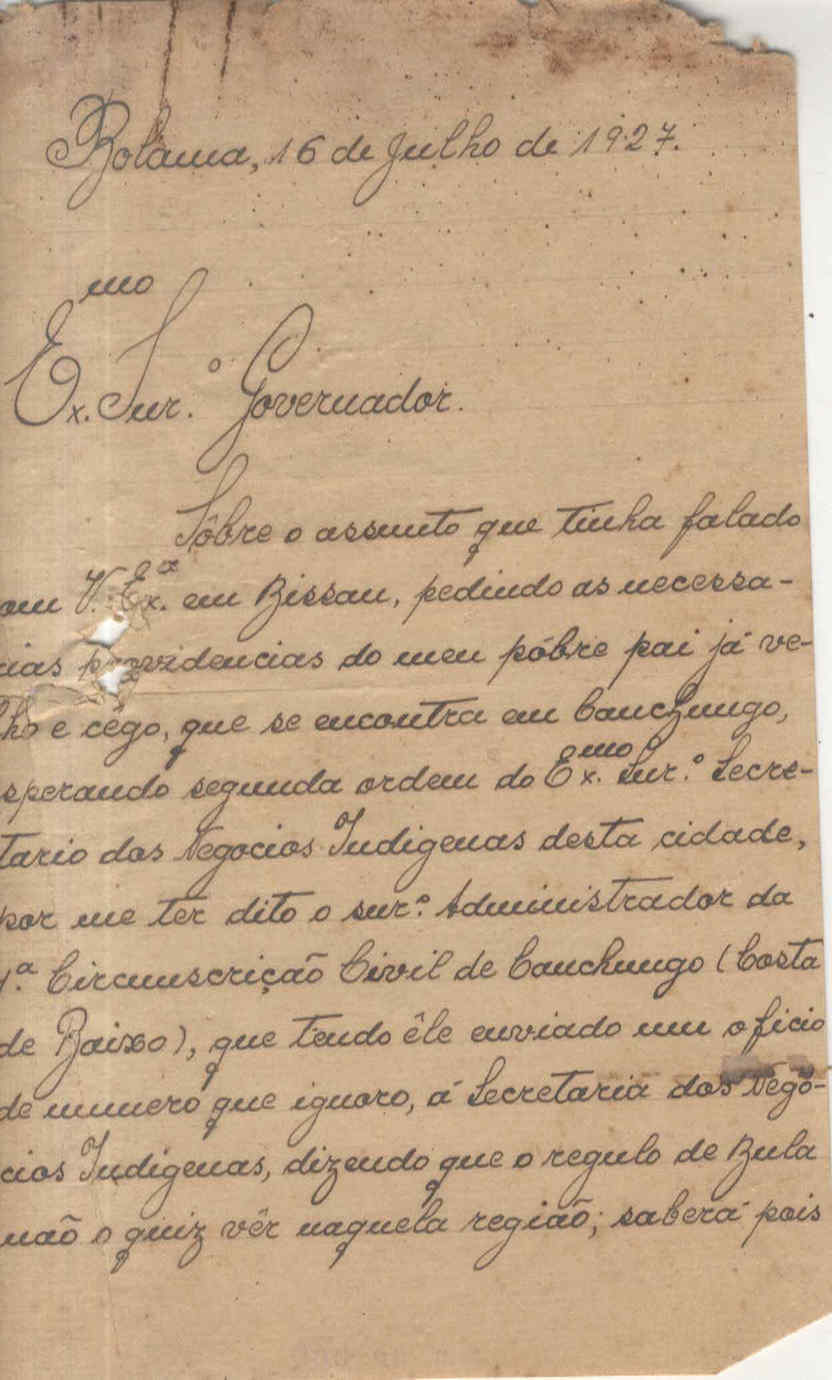 Bolama, 16 de Julho de 1927.
Ex.mo Snr.º Governador.
Sôbre o assunto que tinha falado
om V. Ex.a em Bissau, pedindo as necessa-
rias providencias do meu póbre pai já ve-
lho e cégo, que se encontra em Canchungo,
sperando segunda ordem do Ex.mo Snr.º Secre-
tario dos Negocios Indigenas desta cidade,
por me ter dito o snr.º Administrador da
1.ª Circunscrição Civil de Canchungo (Costa
de Baixo), que tendo êle enviado um oficio
de numero que ignoro, á Secretaria dos Negó-
cios Indigenas, dizendo que o regulo de Bula
não o quiz vêr naquela região; saberá pois